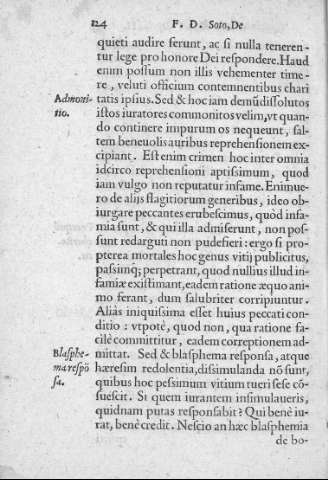 124 F. D. Soto, De
quieti audire ferunt, ac si nulla teneren-
tur lege pro honore Dei respondere. Haud
enim possum non illis vehementer time-
re, veluti officium contemnentibus chari
Admoni- tatis ipsius. Sed & hoc iam demũ dissolutos
tio. istos iuratores commonitos velim, vt quan-
do continere impurum os nequeunt, sal-
tem beneuolis auribus reprehensionem ex-
cipiant. Est enim crimen hoc inter omnia
idcirco reprehensioni aptissimum, quod
iam vulgo non reputatur infame. Enimue-
ro de alijs flagitiorum generibus, ideo ob-
iurgare peccantes erubescimus, quòd infa-
mia sunt, & qui illa admiserunt, non pos-
sunt redarguti non pudefieri: ergo si pro-
pterea mortales hoc genus vitij publicitus,
passimq; perpetrant, quod nullius illud in-
famiæ existimant, eadem ratione æquo ani-
mo ferant, dum salubriter corripiuntur.
Aliàs iniquissima esset huius peccati con-
ditio: vtpotè, quod non, qua ratione fa-
cilè committitur, eadem correptionem ad-
Blasphe- mittat. Sed & blasphema responsa, atque
ma respõ hæresim redolentia, dissimulanda nõ sunt,
sa. quibus hoc pessimum vitium tueri sese cõ-
suescit. Si quem iurantem insimulaueris,
quidnam putas responsabit? Qui benè iu-
rat, benè credit. Nescio an hæc blasphemia
de bo-